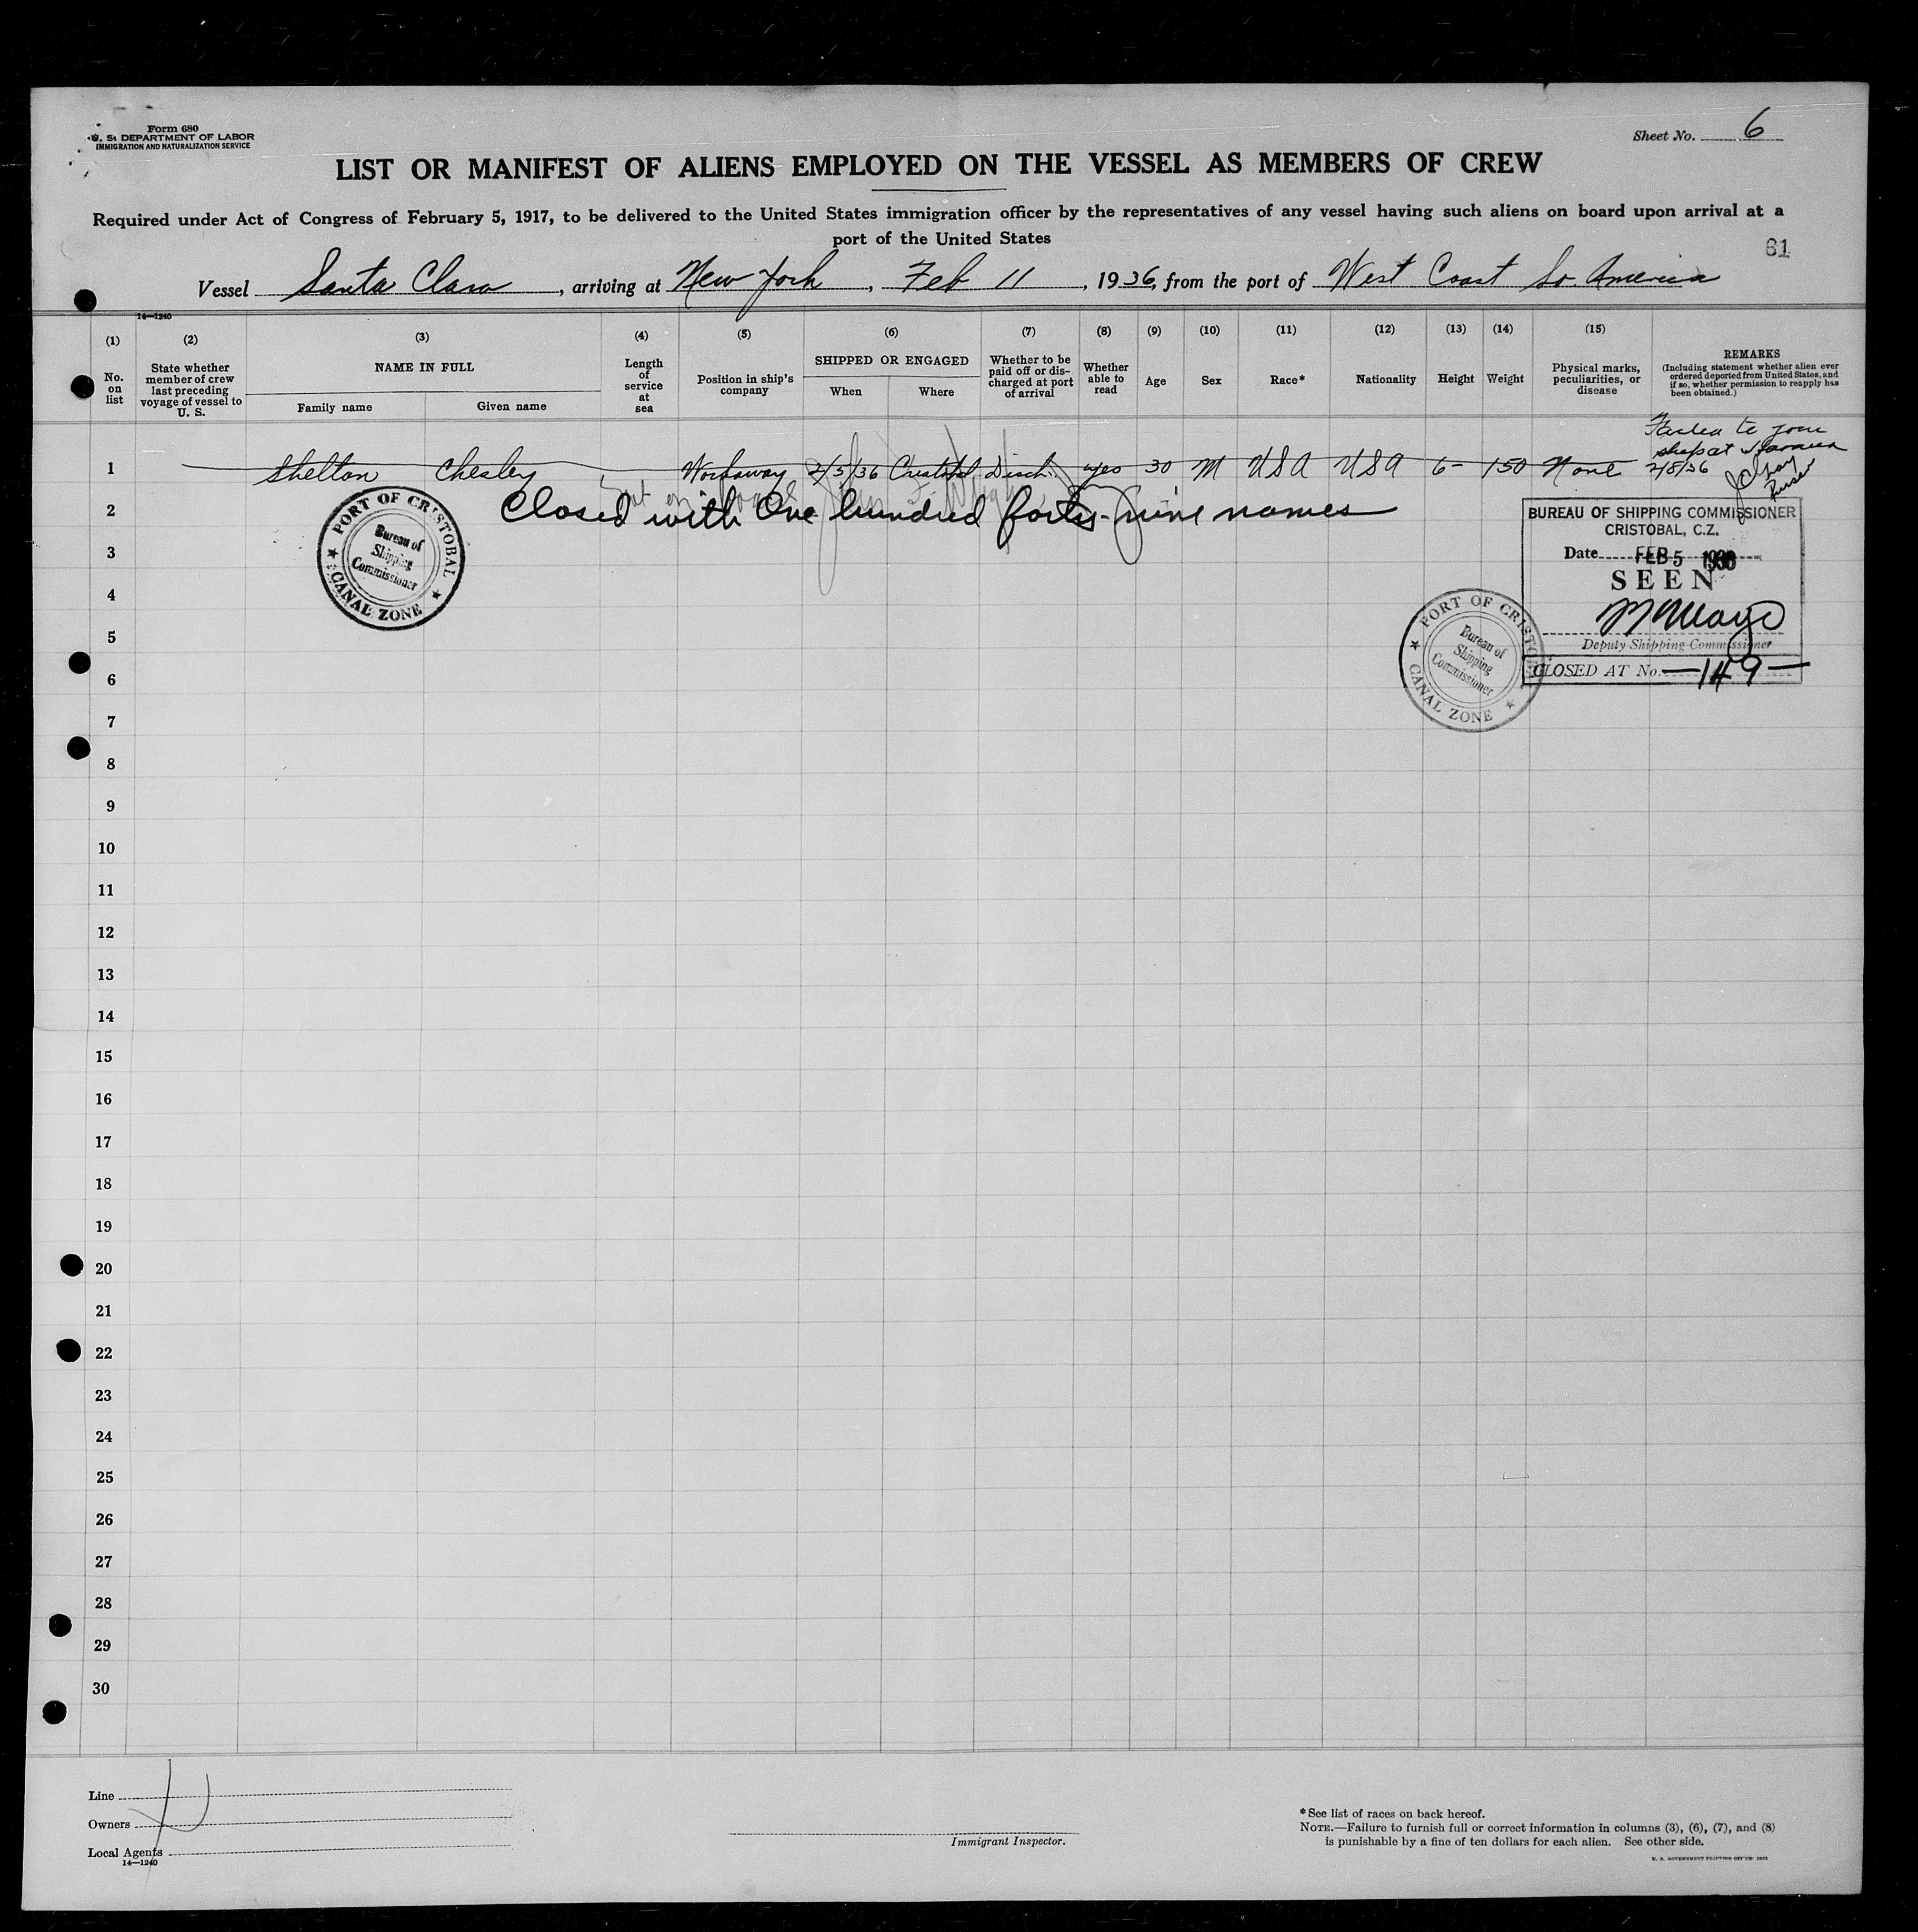 Form 680
U. S. DEPARTMENT OF LABOR
IMMIGRATION AND NATURALIZATION SERVICE
Sheet No. 6
LIST OR MANIFEST OF ALIENS EMPLOYED ON THE VESSEL AS MEMBERS OF CREW
Required under Act of Congress of February 5, 1917, to be delivered to the United States immigration officer by the representatives of any vessel having such aliens on board upon arrival at a
port of the United States
61
Vessel Santa Clara, arriving at New York, Feb 11, 1936, from the port of West Coast So. America
14—1240
(1) (2) (3) (4) (5) (6) (7) (8) (9) (10) (11) (12) (13) (14) (15)
No. on list
State whether member of crew last preceding voyage of vessel to U. S.
NAME IN FULL
Family name
Given name
Length of service at sea
Position in ship's company
SHIPPED OR ENGAGED
When
Where
Whether to be paid off or discharged at port of arrival
Whether able to read
Age
Sex
Race*
Nationality
Height
Weight
Physical marks, peculiarities, or disease
REMARKS
(Including statement whether alien ever ordered deported from United States, and if so, whether permission to reapply has been obtained.)
Failed to join
ship at Havana
2/8/36
Purser
1 Shelton Chesley Workaway 2/5/36 Cristobal Disch. yes 30 M USA USA 6- 150 None
2 Closed with One hundred forty-nine names
PORT OF CRISTOBAL
Bureau of
Shipping
Commissioner
CANAL ZONE
BUREAU OF SHIPPING COMMISSIONER
CRISTOBAL, C.Z.
Date FEB 5 1936
SEEN
Deputy Shipping Commissioner
CLOSED AT No. —149—
PORT OF CRISTOBAL
Bureau of
Shipping
Commissioner
CANAL ZONE
3
4
5
6
7
8
9
10
11
12
13
14
15
16
17
18
19
20
21
22
23
24
25
26
27
28
29
30
Line
Owners
Local Agents
14—1240
Immigrant Inspector.
*See list of races on back hereof.
NOTE.—Failure to furnish full or correct information in columns (3), (6), (7), and (8)
is punishable by a fine of ten dollars for each alien. See other side.